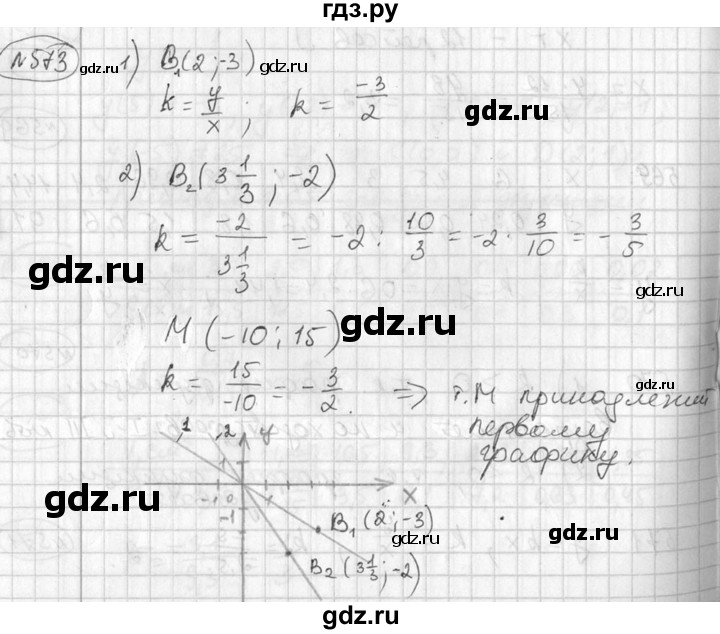 гдз.ру
№573 gdz.ru 1) B₁(2;-3) gdz.ru
k = y/x ; k = -3/2 gdz.ru
2) B₂(3 1/3; -2)
k = -2/(3 1/3) = -2 : 10/3 = -2 · 3/10 = - 3/5
gdz.ru gdz.ru gdz.ru
M (-10; 15) gdz.ru
k = 15/-10 = - 3/2. => т. М принадлежит
первому
графику.
1 2 y
gdz.ru gdz.ru
1
-1 0 1 x
-1
B₁ (2; -3)
gdz.ru gdz.ru
B₂ (3 1/3; -2)
gdz.ru